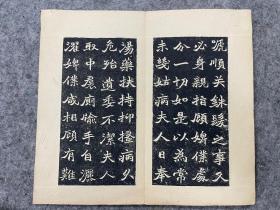 之事
必身親指顧婢僕處
分一切如是以為常
未幾姑病夫人日奉
湯藥扶持抑搔病久
危殆遺委不潔夫人
取中廁牏手自灑
濯婢僕咸相顧有難